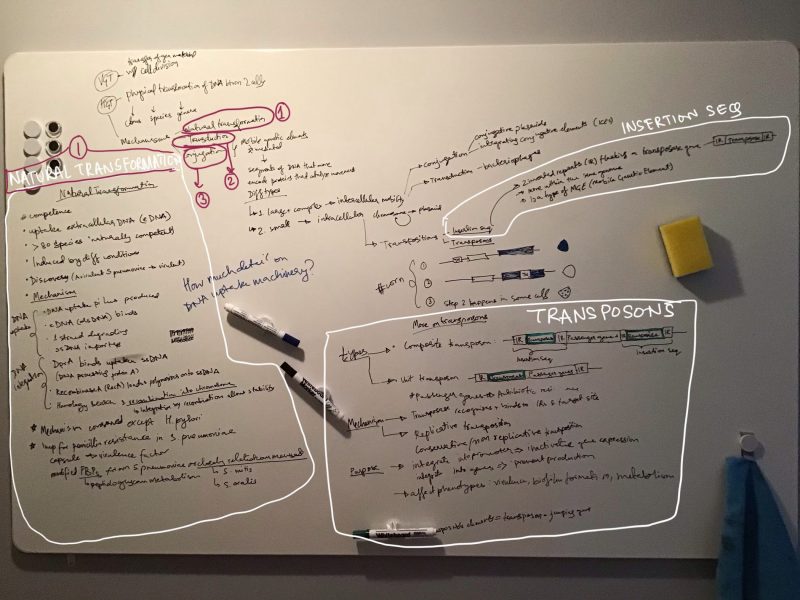 transfer of gen material
VGT → w/ cell division
HGT → physical translocation of DNA btwn 2 cells
clone species genera
Mechanisms → Natural transformation ①
Transduction ②
Conjugation ③
Mobile genetic elements
segments of DNA that move
encode proteins that
Diff types
→ 1. large + complex → intercellular mobility
→ 2. small → intracellular
chromosome plasmid
→ Conjugation
conjugative plasmids
integrating conjugative elements (ICEs)
→ Transduction - bacteriophages
→ Transpositions
Insertion seq
Transposons
INSERTION SEQS
→ 2 inverted repeats (IR) flanking a transposase gene
IR Transposase IR
→ move within the same genome
→ is a type of MGE (Mobile Genetic Element)
#corn
①
②
③ step 2 happens in some cells
① NATURAL TRANSFORMATION
Natural Transformation
# competence
• uptake extracellular DNA (eDNA)
• > 80 species 'naturally competent'
• Induced by diff conditions
• Discovery (avirulent S pneumoniae → virulent)
• Mechanism
DNA uptake
• DNA uptake pilus produced
• eDNA (dsDNA) binds
• 1 strand degrading
ssDNA imported
DNA integration
• DprA binds uptaken ssDNA
(DNA processing protein A)
• Recombinase (RecA) binds polymerises onto ssDNA
• Homology search & recombination into chromosome
↳ integration by recombination allows stability
* Mechanism conserved except H. pylori
* imp for penicillin resistance in S. pneumoniae
capsule → virulence factor
modified PBPs from non S pneumoniae or closely related commensals
↳ peptidoglycan metabolism
↳ S. mitis
↳ S. oralis
How much detail on
DNA uptake machinery?
TRANSPOSONS
More on transposons
Types → • Composite transposon
IR Transposase IR Passenger genes IR Transposase IR
Insertion seq. Insertion seq.
→ • Unit transposon
IR Transposase Passenger genes IR
* Passenger genes → Antibiotic
Mechanism → Transposase recognises + binds to IRs & target site
→ Replicative transposition
Conservative/non replicative transposition
Purpose → integrate into promoters → inactivate gene expression
integrate into genes → prevent production
→ affect phenotypes: virulence, biofilm formation, metabolism
elements = transposon = jumping gene
Whiteboard